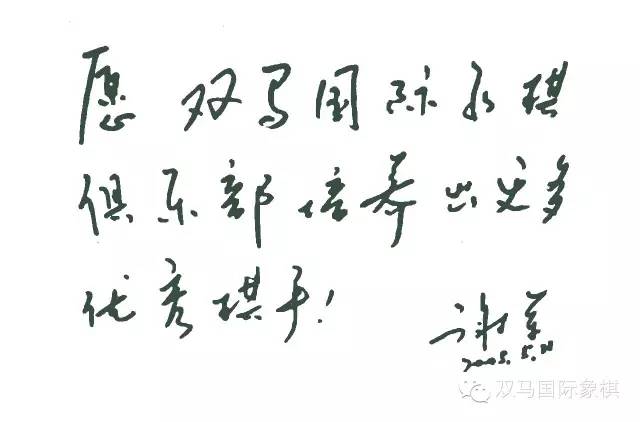 愿双马国际象棋
俱乐部培养出更多
优秀棋手!
谢军
2005.5.21
双马国际象棋